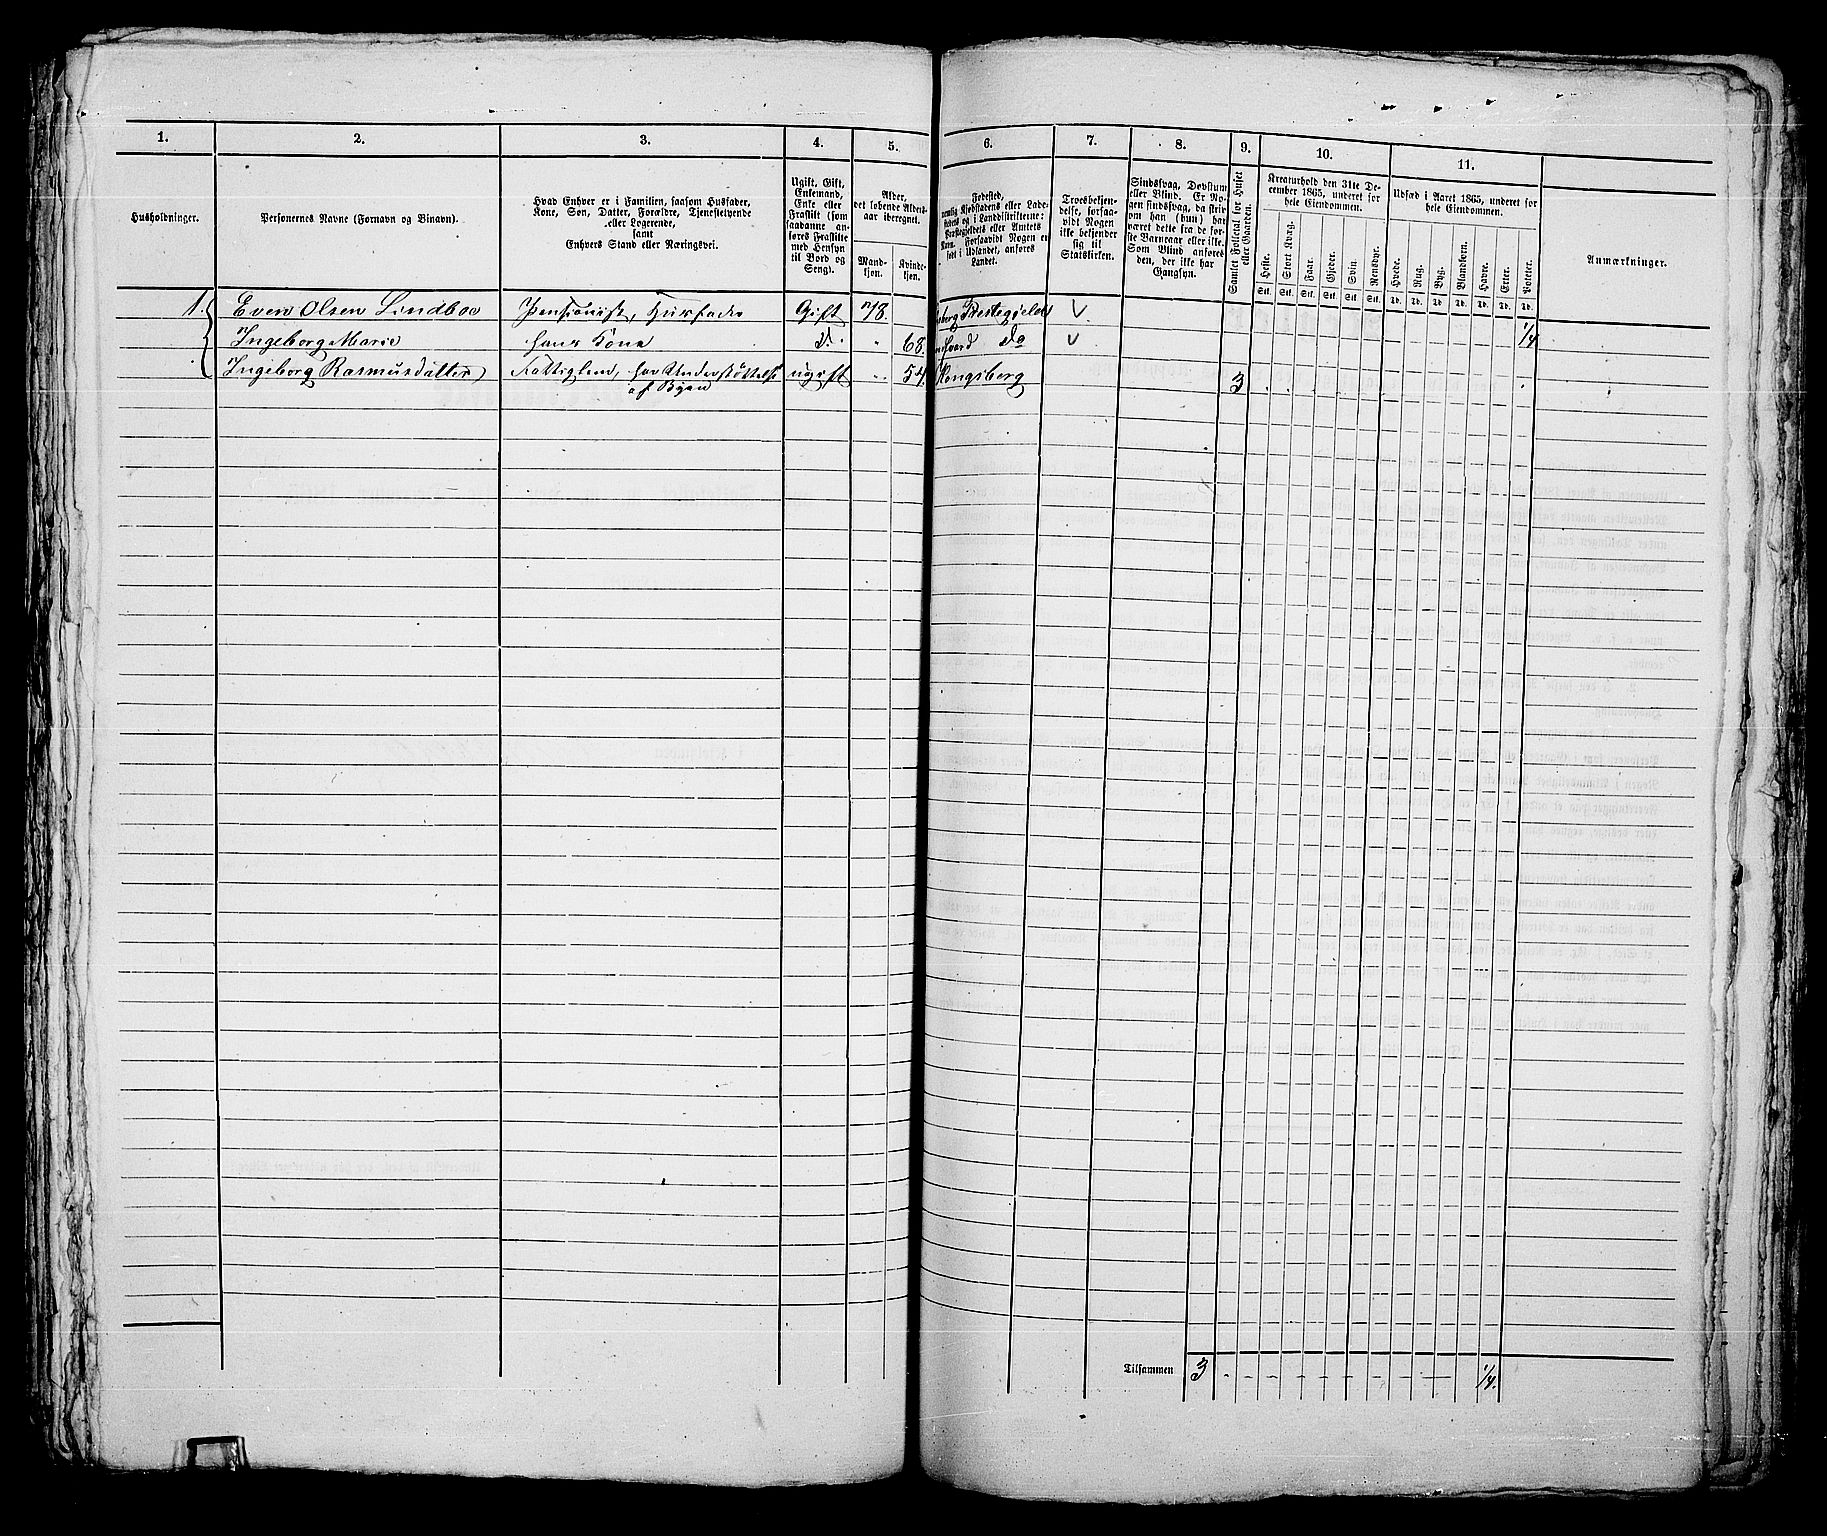 1. 2. 3. 4. 5. 6. 7. 8. 9. 10. 11.
Husholdninger.
Personernes Navne (Fornavn og Binavn).
Hvad Enhver er i Familien, saasom Husfader,
Kone, Søn, Datter, Forældre, Tjenestetyende
eller Logerende,
samt
Enhvers Stand eller Næringsvei.
Ugift, Gift,
Enkemand,
Enke eller
Fraskilt (som
saadanne an-
føres Fraskilte
med Hensyn
til Bord og
Seng).
Alder,
det løbende Alders-
aar iberegnet.
Mand-
kjøn.
Kvinde-
kjøn.
Fødested,
nemlig Kjøbstadens eller Lade-
stedets og i Landdistrikterne:
Præstegjeldets eller Amtets
Navn. Forsaavidt Nogen er
født i Udlandet, anføres
Landet.
Troesbekjen-
delse, forsaa-
vidt Nogen
ikke bekjender
sig til
Statskirken.
Sindssvag, Døvstum
eller Blind. Er No-
gen sindssvag, da skriv
om han (hun) har
været dette fra de før-
ste Barneaar eller ikke.
Som Blind anføres
den, der ikke har
Gangsyn.
Samlet Folketal for Huset
eller Gaarden.
Kreaturhold den 31te De-
cember 1865, underet for
hele Eiendommen.
Heste. Stort Kvæg. Faar. Gjeder. Svin. Rensdyr.
Stk. Stk. Stk. Stk. Stk. Stk.
Udsæd i Aaret 1865, underet for
hele Eiendommen.
Hvede. Rug. Byg. Blandkorn. Havre. Erter. Poteter.
Td. Td. Td. Td. Td. Td. Td.
Anmærkninger.
1. Even Olsen Lindboe Pensionist, Husfader Gift 78. Præstegjeld 1/4
Ingeborg Marie hans Kone d. " 68. do
Ingeborg Rasmusdatter Fattiglem, har Understøttelse ugift " 54. Kongsberg 3
af Byen
Tilsammen 3 1/4.